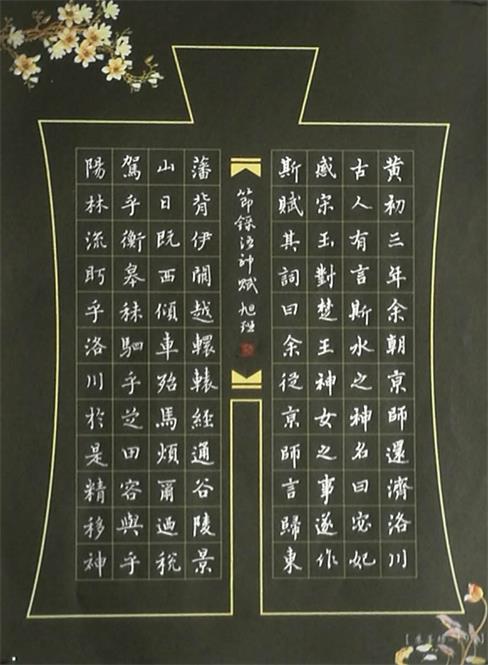 黄初三年余朝京師還濟洛川
古人有言斯水之神名曰宓妃
感宋玉對楚王神女之事遂作
斯賦其詞曰余從京師言歸東
節錄洛神賦 旭
藩背伊闕越轘轅經通谷陵景
山日既西傾車殆馬煩爾迺稅
駕乎衡皋秣駟乎芝田容與乎
陽林流眄乎洛川於是精移神